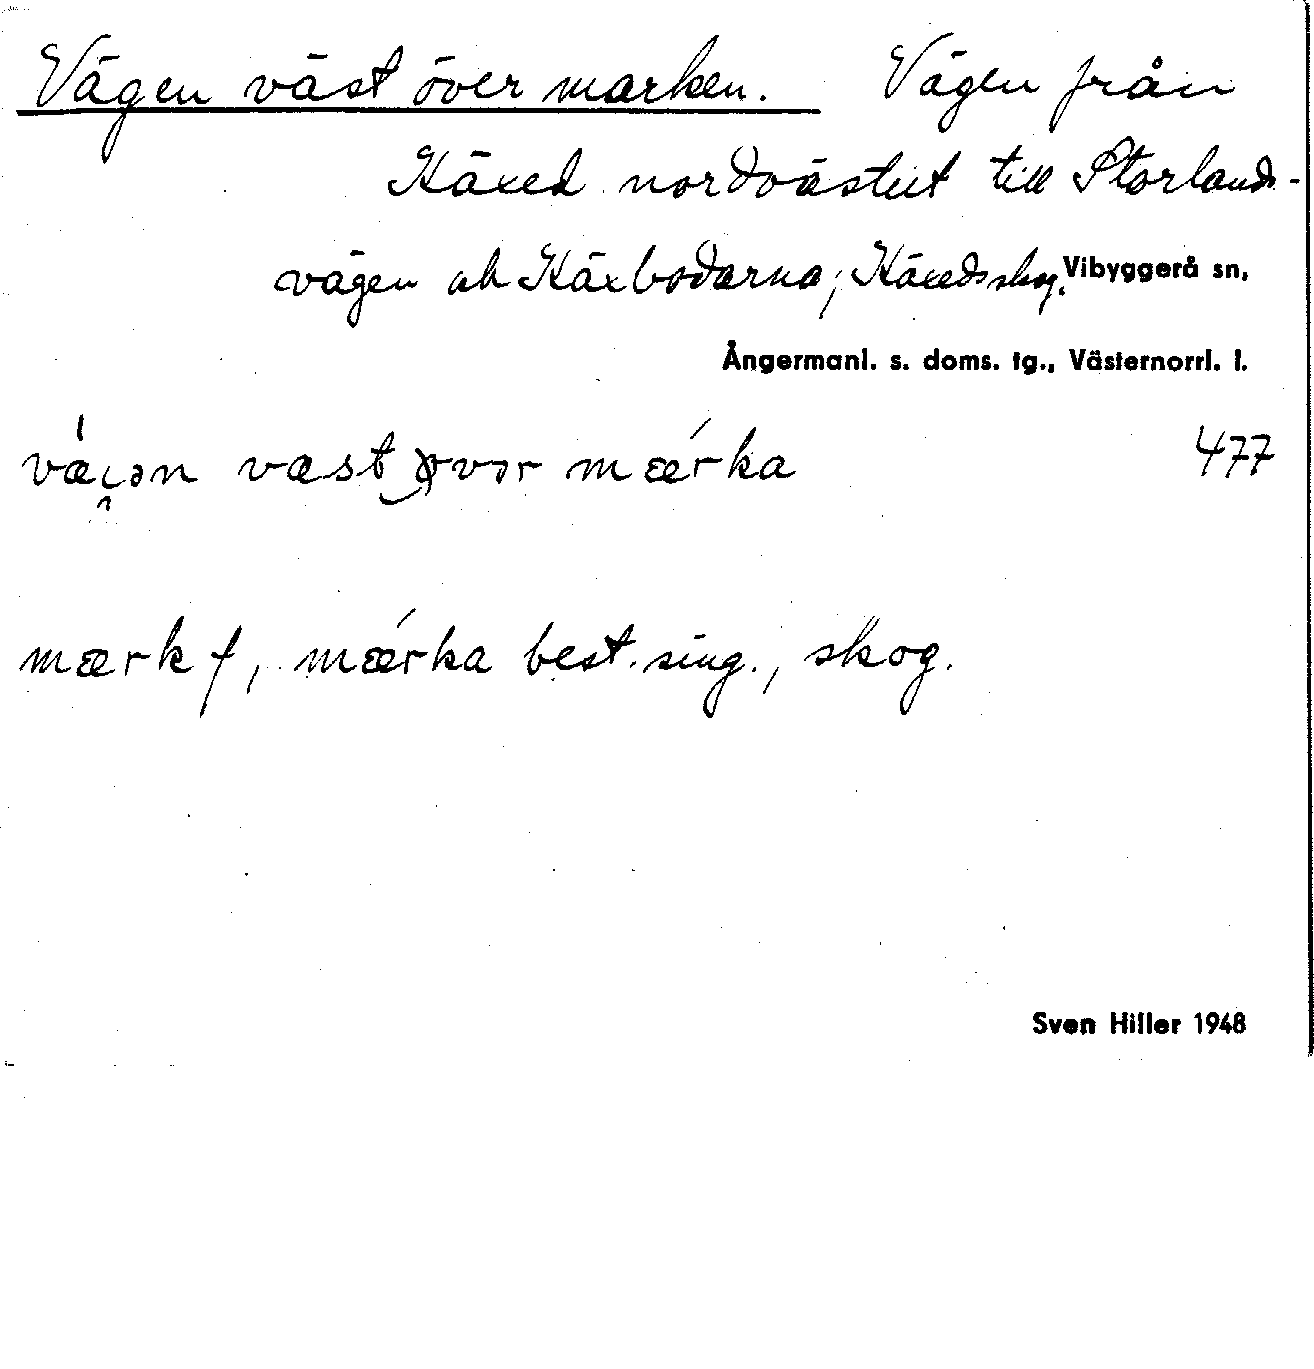 Vägen väst över marken. Vägen från
Käxed nordvästut till Storlands-
vägen ok Käxbodarna, Käxedsskog. Vibyggerå sn,
Ångermanl. s. doms. tg., Västernorrl. l.
væ̍ɩən væst øvər mǽrka 477
mærk f, mǽrka best. sing., skog.
Sven Hiller 1948